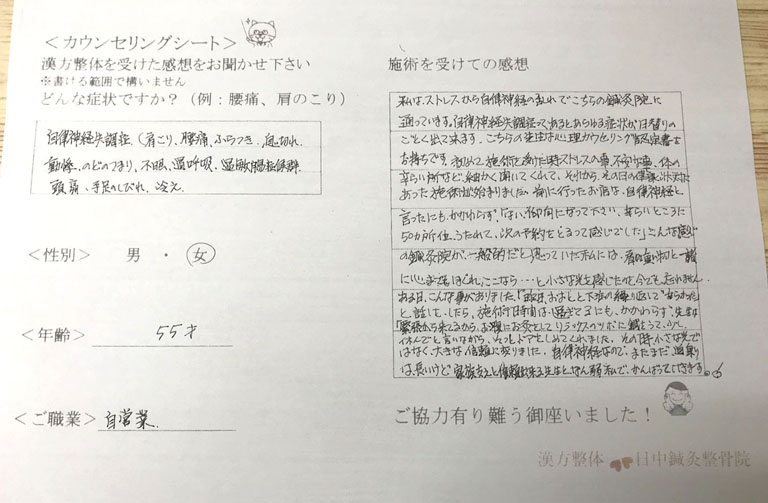 ＜カウンセリングシート＞
漢方整体を受けた感想をお聞かせ下さい
※書ける範囲で構いません
どんな症状ですか？（例：腰痛、肩のこり）
自律神経失調症（肩こり、腰痛、ふらつき、息切れ、
動悸、のどのつまり、不眠、過呼吸、過敏性腸症候群
頭痛、手足のしびれ、冷え
＜性別＞ 男 ・ 女
＜年齢＞ 55才
＜ご職業＞ 自営業
施術を受けての感想
私は、ストレスから自律神経の乱れでこちらの鍼灸院に
通っています。自律神経失調症ってあらとあらゆる症状が日替りの
ごとく出て来ます。こちらの先生は心理カウンセリング認定書を
お持ちです。初めて施術に来た時ストレスの事、不安な事、体の
辛い所など、細かく聞いてくれて、それから、その日の体調と状況に
あった施術が始まりました。前に行ったお店は、自律神経と
言ったにも、かかわらず、「はい、仰向になって下さい、辛いところに
50カ所位、うたれて、次の予約をどうぞって感じでした」こんな感じ
の鍼灸院が、一般的だと思っていた私には、肩の重い物と一緒
に心までもほぐれ、ここなら・・・と小さな光を感じたのを今でも忘れません
ある日、こんな事がありました、「昨日、おはしと下痢の繰り返しで辛かった」
と話をしたら、施術時間は過ぎてるにも、かかわらず、先生は
「緊張から来てるから、お腹にお灸をして リラックスのツボに鍼をうって、少し、
休んで」と言いながら、そっとドアをしめてくれました、その時、小さな光で
はなく、大きな信頼に変りました。自律神経なので、まだまだ、道のり
は、長いけど 家族の支えと信頼出来る先生と
ご協力有り難う御座いました！
漢方整体 日中鍼灸整骨院